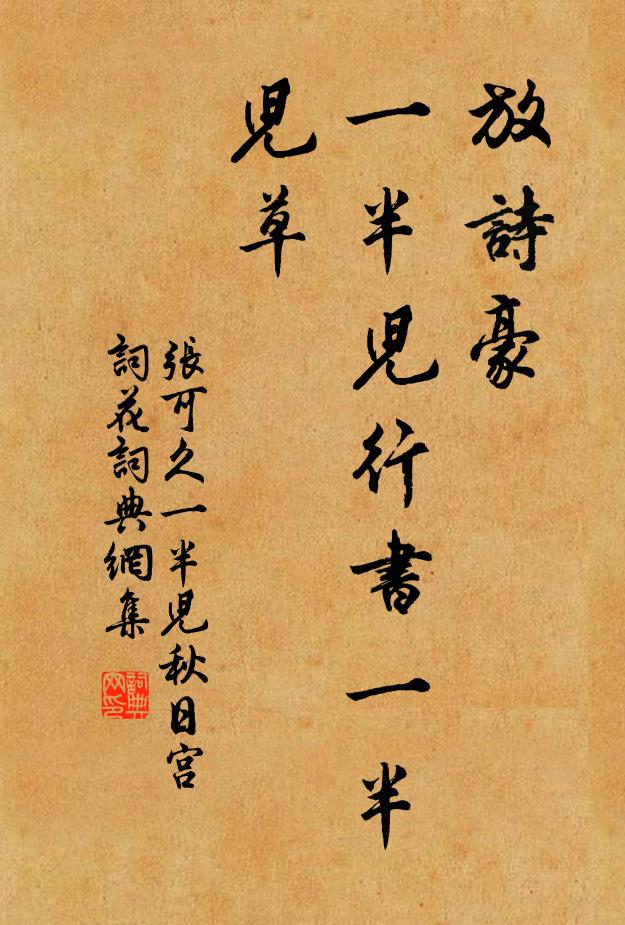 放詩豪
一半兒行書一半
兒草
張可久一半兒秋日宮
詞花詞典網集
詞典
网印